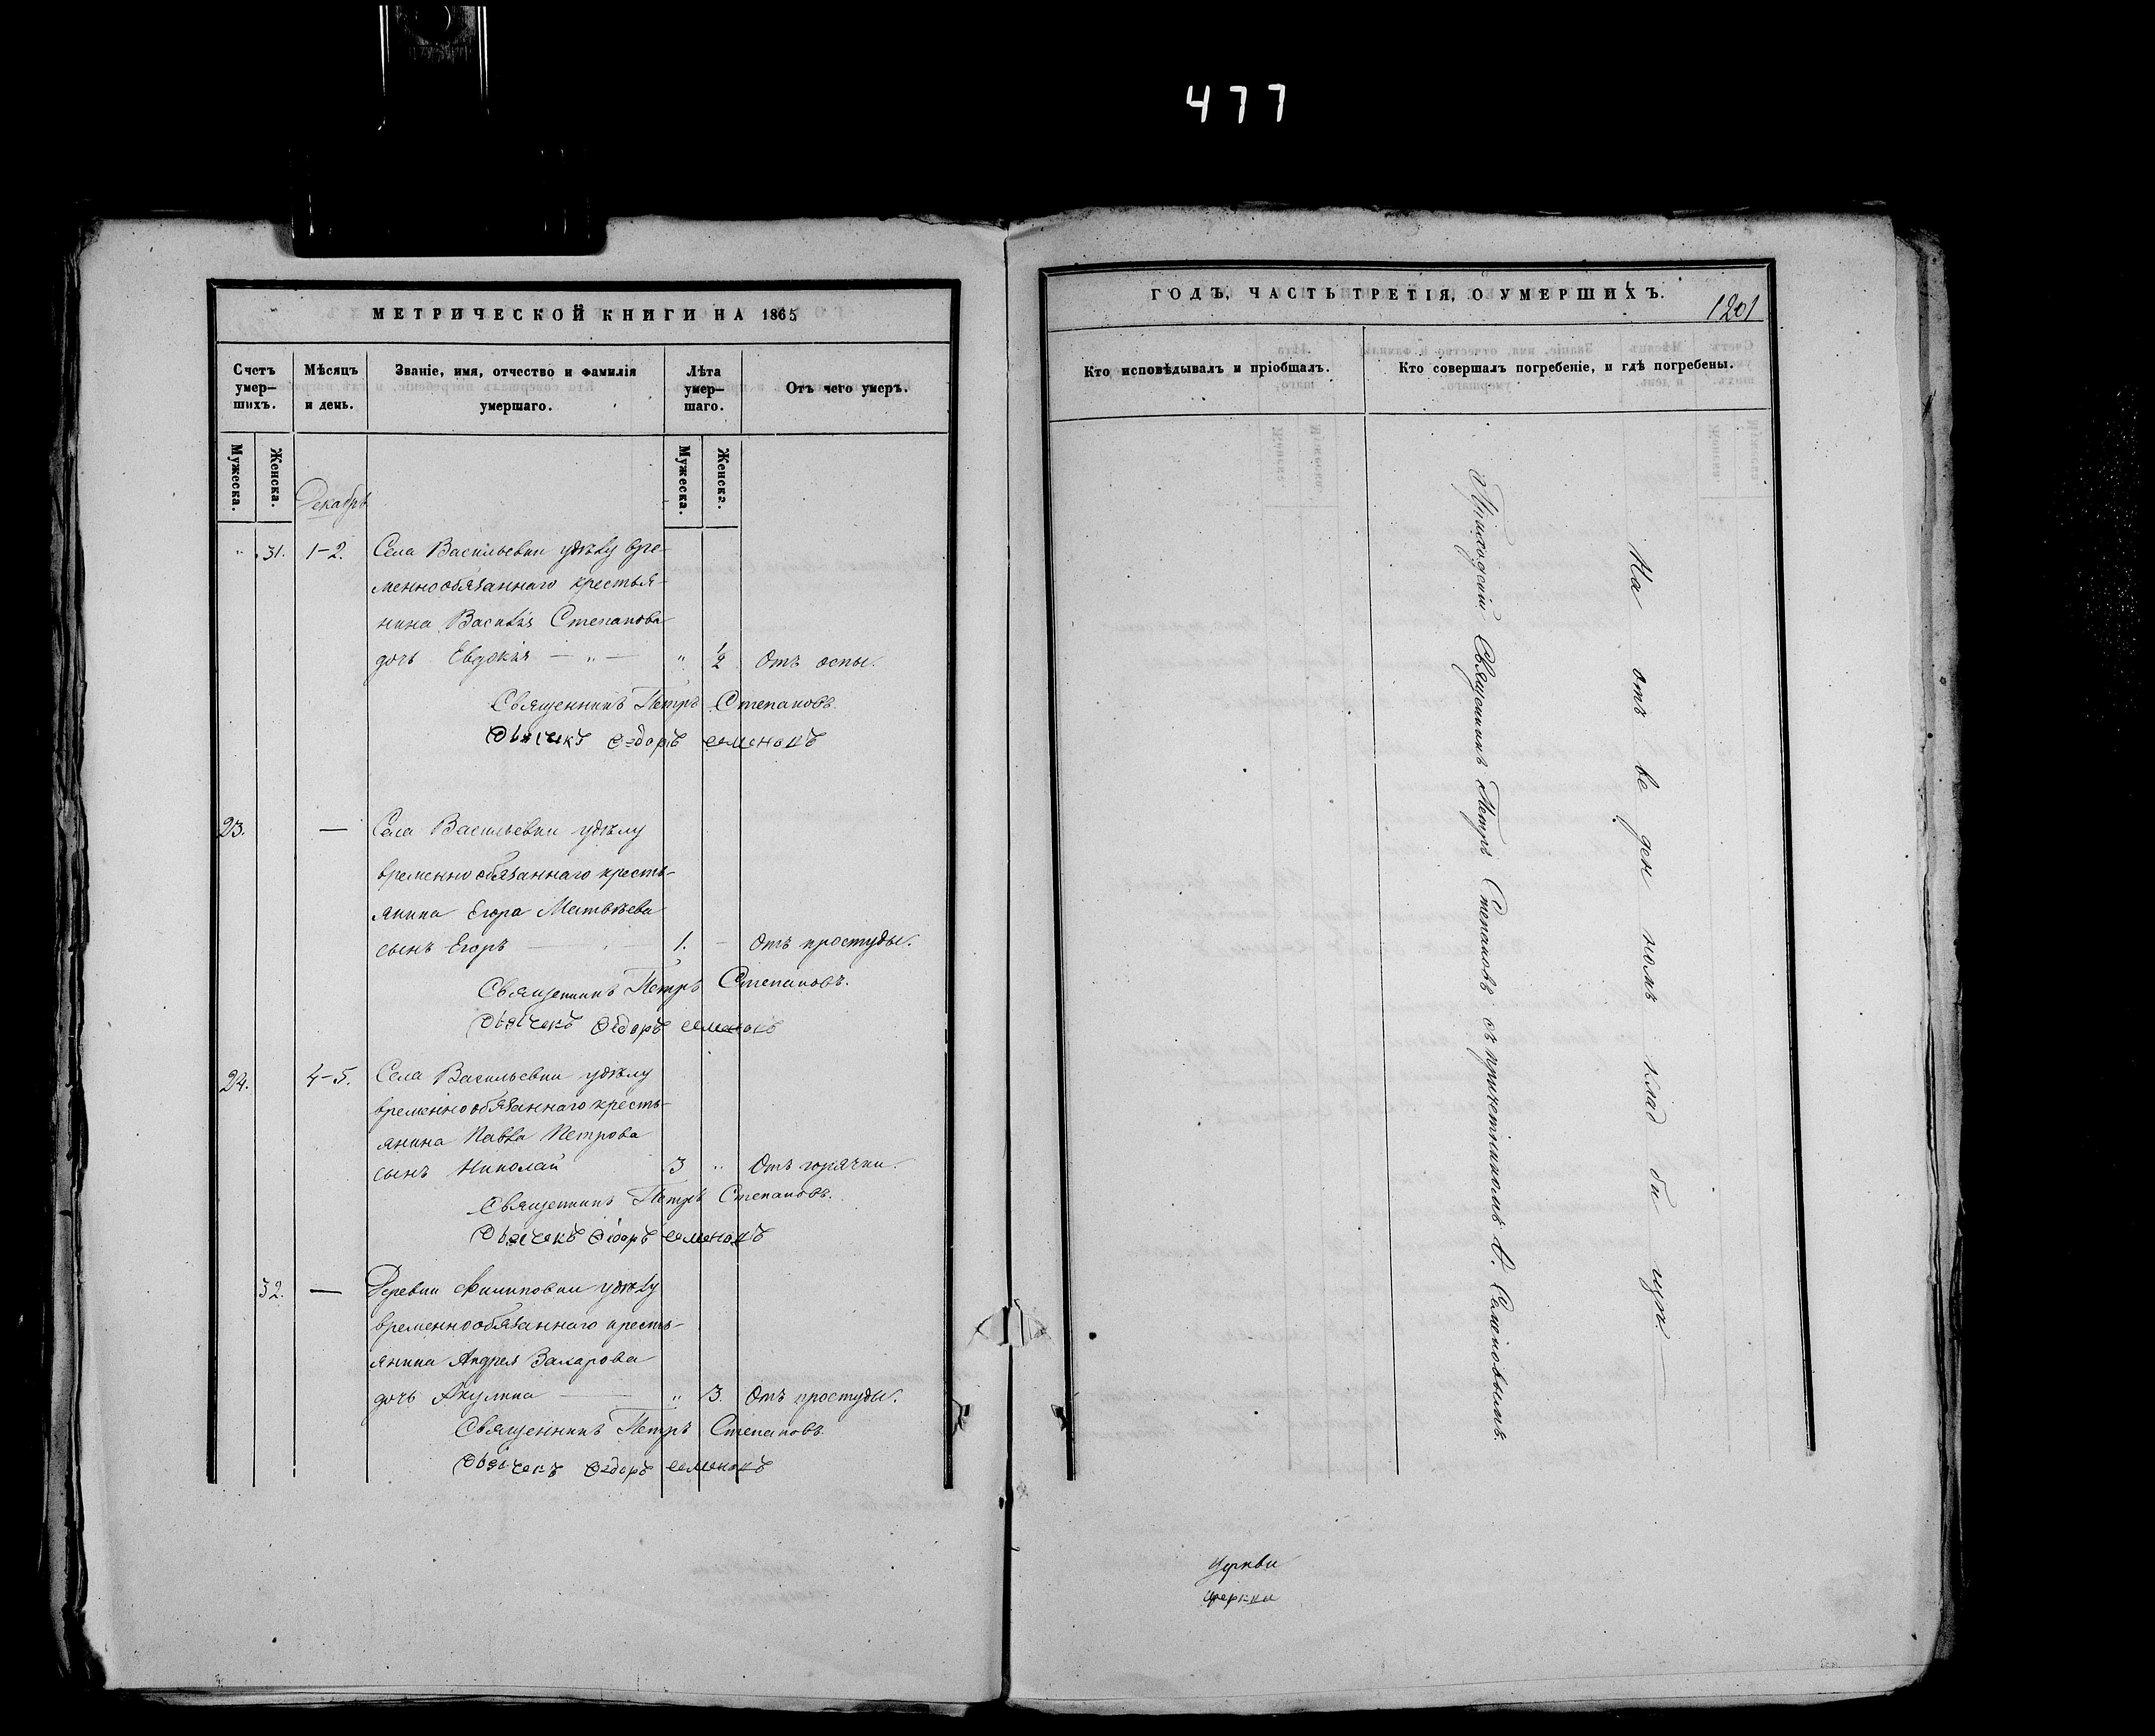 477
МЕТРИЧЕСКОЙ КНИГИ НА 1865
Счетъ умер-шихъ.
Мѣсяцъ и день.
Званіе, имя, отчество и фамилія умершаго.
Лѣта умер-шаго.
Отъ чего умеръ.
Мужеска.
Женска.
Мужеска.
Женска.
Декабрь
" 31. 1-2. Села Васильевки удѣлу вре-
меннообязаннаго крестья-
нина Василія Степанова
дочь Евдокія — " — " 1/2 Отъ оспы.
Священникъ Петръ Степановъ
Дьячекъ Ѳедоръ
23. — Села Васильевки удѣлу
временнообязаннаго кресть-
янина Егора Матвѣева
сынъ Егоръ — 1. — Отъ простуды.
Священникъ Петръ Степановъ.
Дьячекъ Ѳедоръ
24. 4-5. Села Васильевки удѣлу
временнообязаннаго кресть-
янина Павла Петрова
сынъ Николай 3 " Отъ горячки.
Священникъ Петръ Степановъ.
Дьячекъ Ѳедоръ
32. — Деревни Филиповки удѣлу
временнообязаннаго кресть-
янина Андрея Захарова
дочь Акулина — " 3. Отъ простуды.
Священникъ Петръ Степановъ
Дьячекъ Ѳедоръ
ГОДЪ, ЧАСТЬ ТРЕТІЯ, О УМЕРШИХЪ.
1201
Кто исповѣдывалъ и пріобщалъ.
Кто совершалъ погребеніе, и гдѣ погребены.
Приходскій Священникъ Петръ Степановъ съ причетникомъ Ѳ. Семеновымъ.
На отъ ве ден номъ клад би щѣ.
Церкви
церкви